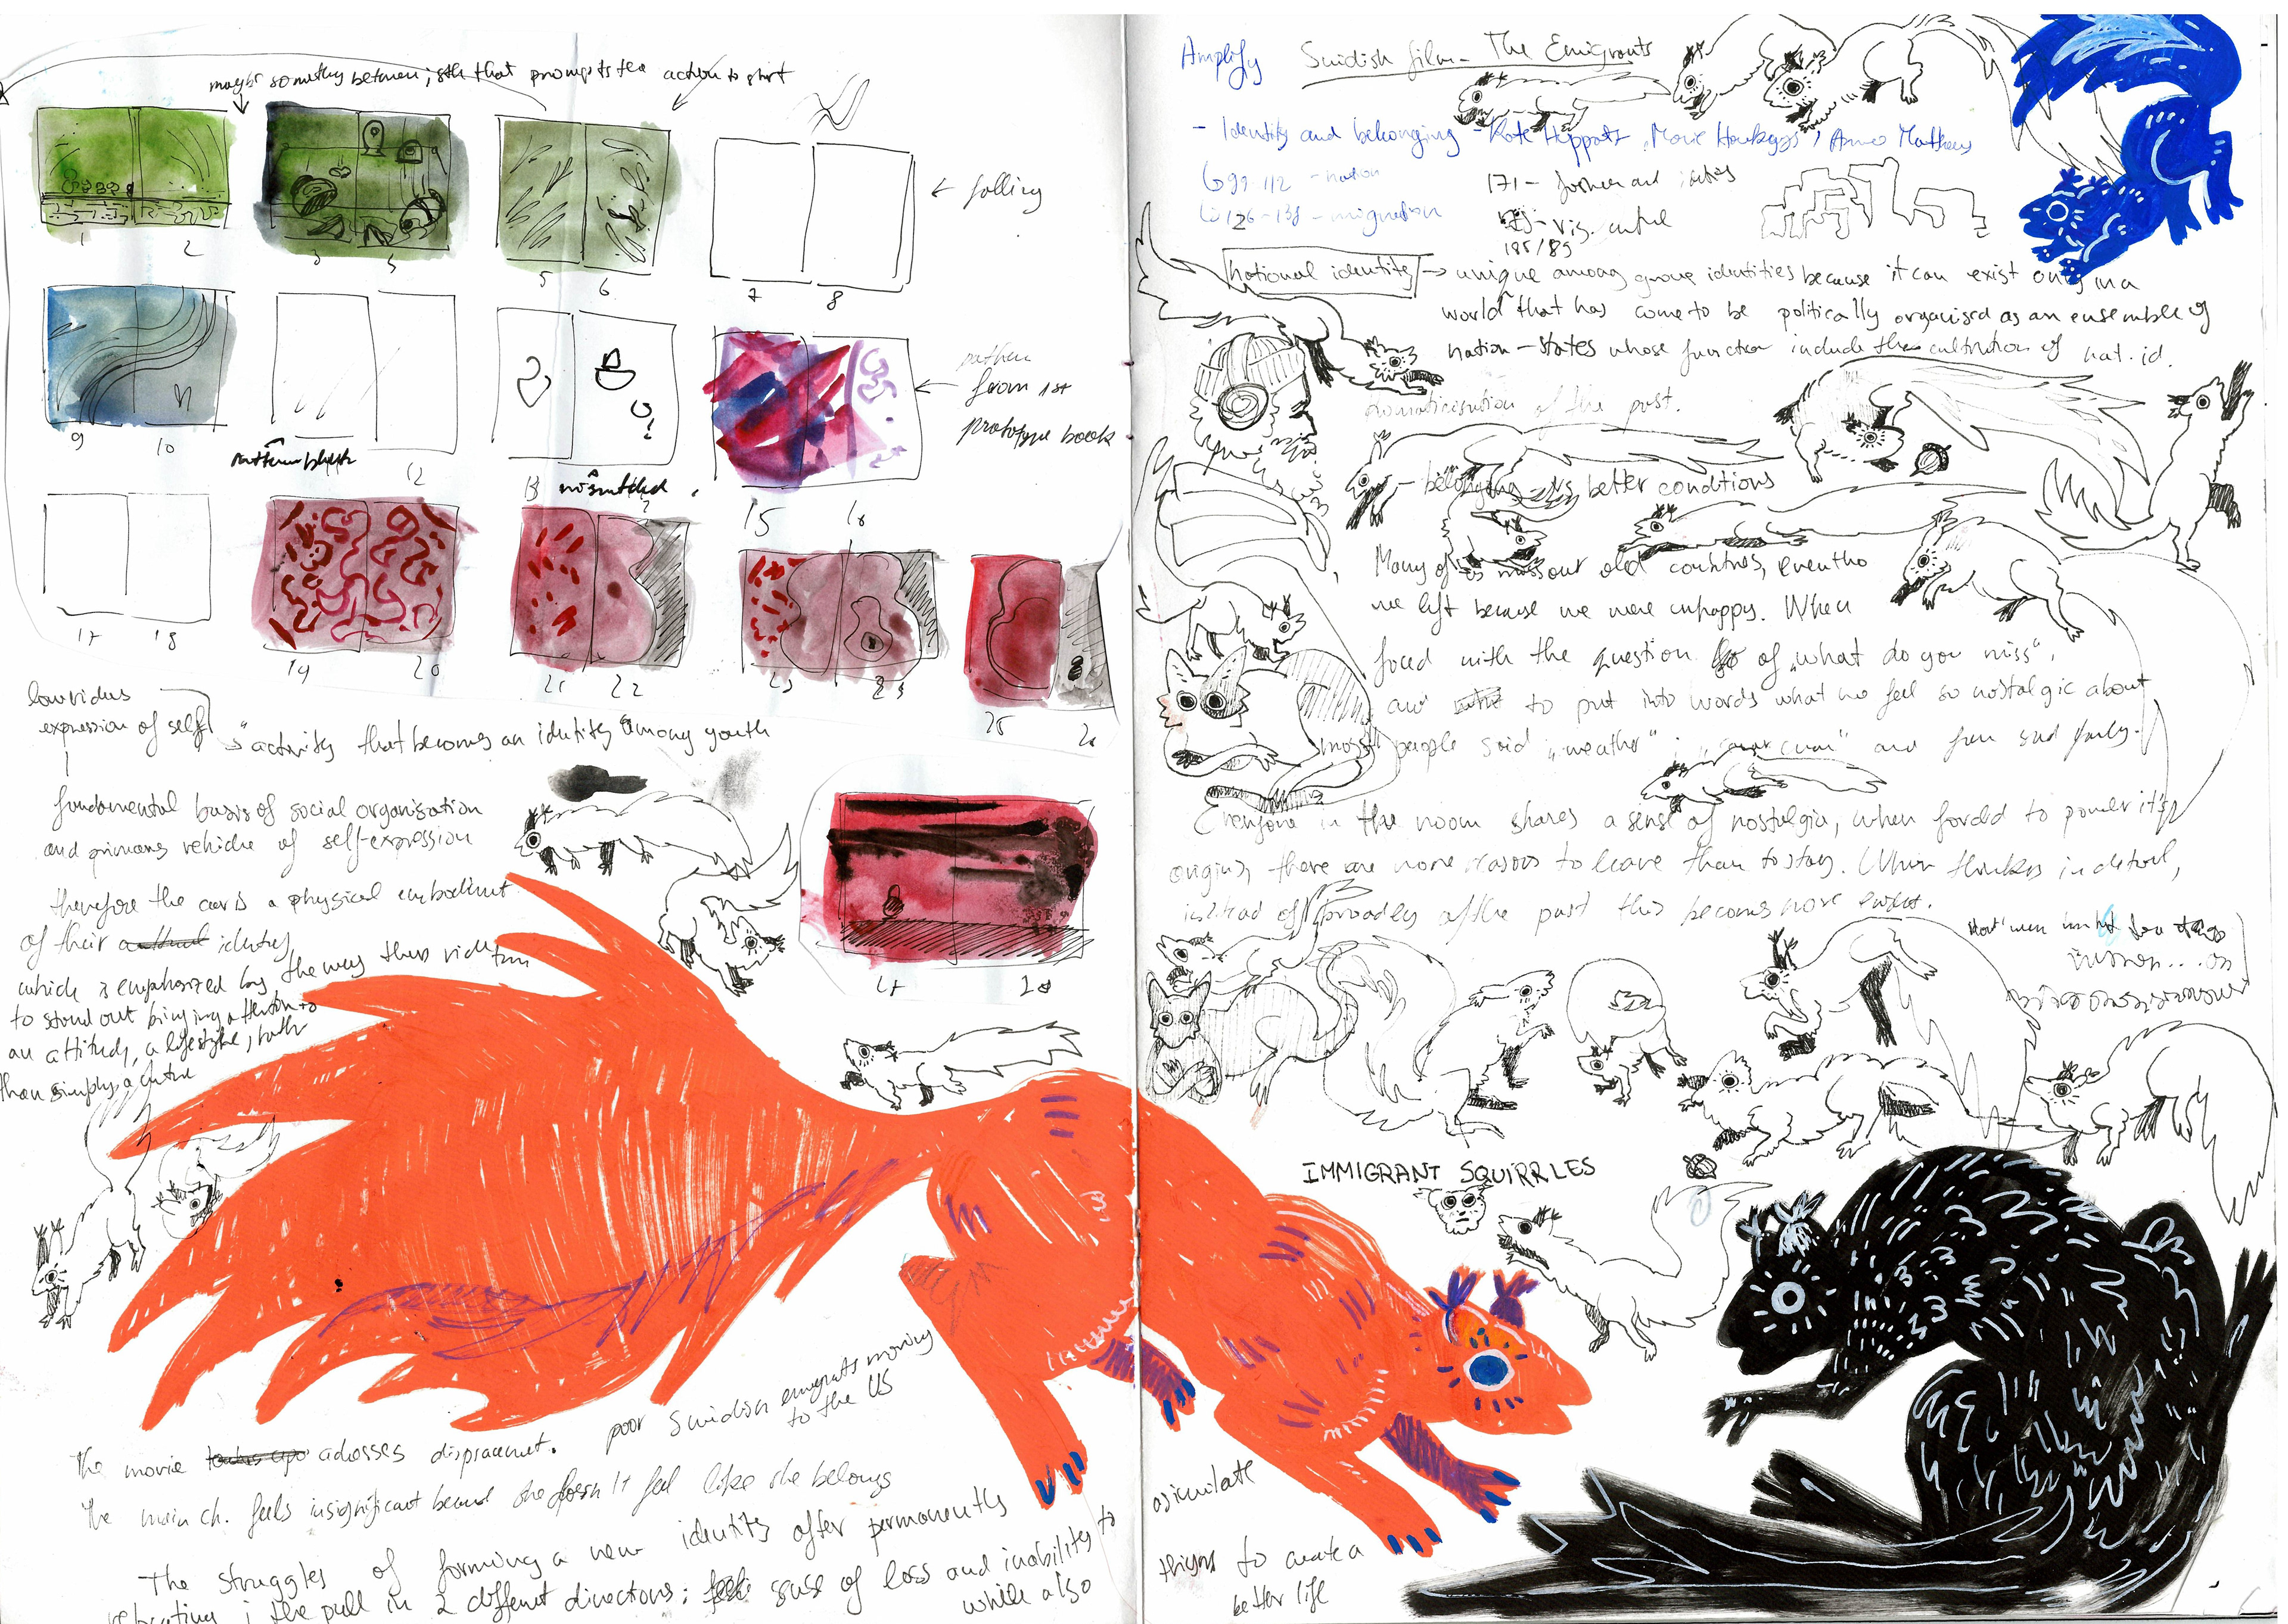 maybe something between; sth that prompts the action to start
1 2
3
5 6
7 8
← falling
9 10
12
13
from 1st
prototype book
15 16
17 18
19 20
21 22
23
25
lowridus
expression of self
"activity that becomes an identity" among youth
fundamental basis of social organisation
and primary vehicle of self-expression
therefore the car is a physical embodiment
of their identity
which is emphasized by the way they ride them
to stand out bringing attention to
an attitude, a lifestyle, rather
than simply a
28
poor Swidish emigrats moving
to the US
The movie adresses displacment.
The main ch. feels insignificant becaus she doesn't feel like she belongs
The struggles of forming a new identity after permanently
relocating; the pull in 2 different directions: sense of loss and inability to
while also
Amplify Swidish film - The Emigrants
- Identity and belonging - Kate
99-112 - nation 171 - fashion and
126-138 - migration
185/89
national identity → unique among group identities because it can exist only in a
world that has come to be politically organised as an ensemble of
nation-states whose function include the cultivation of nat. id.
romaticisation of the past.
- belonging better conditions
Many of us miss our old countries, eventho
we left because we were unhappy. When
faced with the question of „what do you miss",
and to put into words what we feel so nostalgic about
most people said „weather"; and
Everyone in the room shares a sense of nostalgia, when forced to ponder it's
origins there are more reasons to leave than to stay. When thinking in detail,
instead of broadly of the past this becomes more
IMMIGRANT SQUIRRLES
asimilate
things to create a
better life